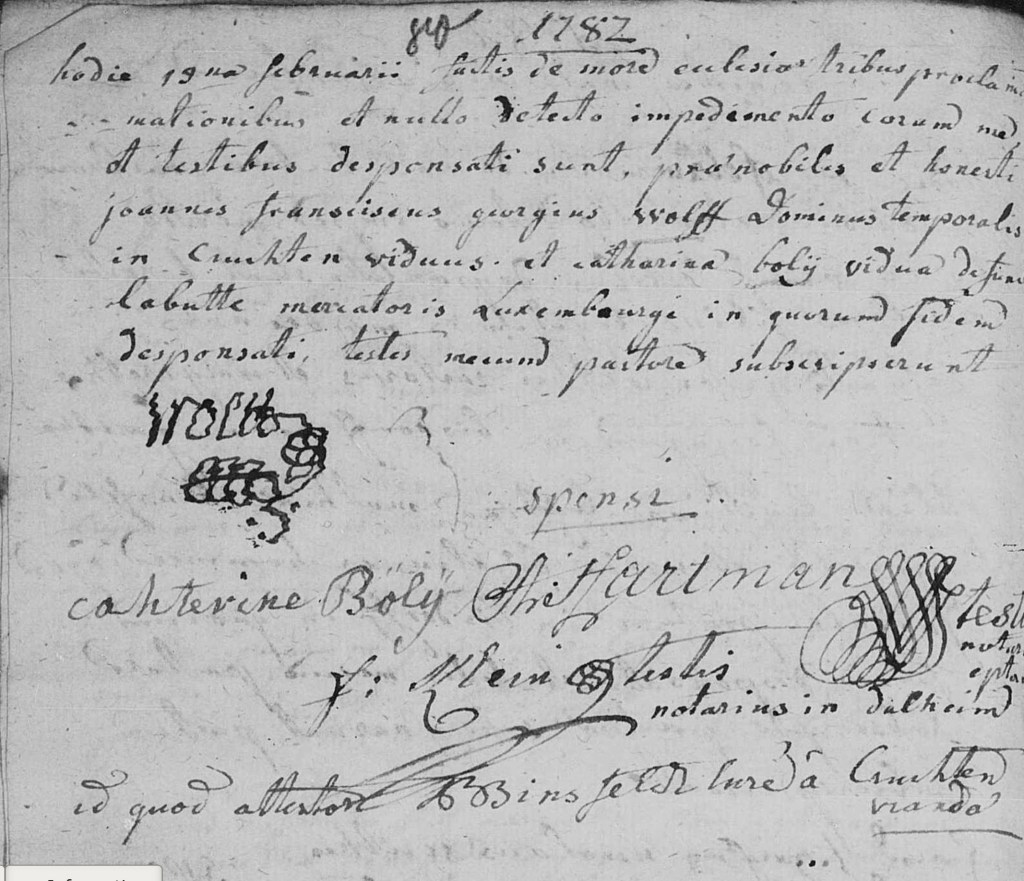 1782
hodie 19na februarii factis de more ecclesiae tribus proclam
mationibus et nullo detecto impedimento coram me
et testibus desponsati sunt, praenobiles et honesti
joannes fransciscus georgius Wolff Dominus temporalis
in Cruchten viduus. et catharina bolÿ vidua defunc
labutte mercatoris Luxemburgi in quorum fidem
desponsati, testes mecum pastore subscripserunt
Wolff
sponsi
cahterine Bölÿ Hartman
testis
f: Klein testis
notarius in dalheim
id quod attestor Binsfeldt curé à Cruchten
vianda
...